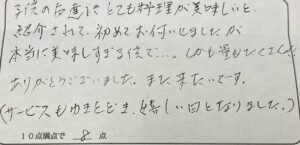 友達にとても料理が美味しいと
紹介されて、初めてお伺いしましたが
本当に美味しすぎる位で…。しかも量もたくさん
ありがとうございました。また来たいです。
(サービスもゆきとどき、嬉しい日となりました。)
10点満点で 8 点